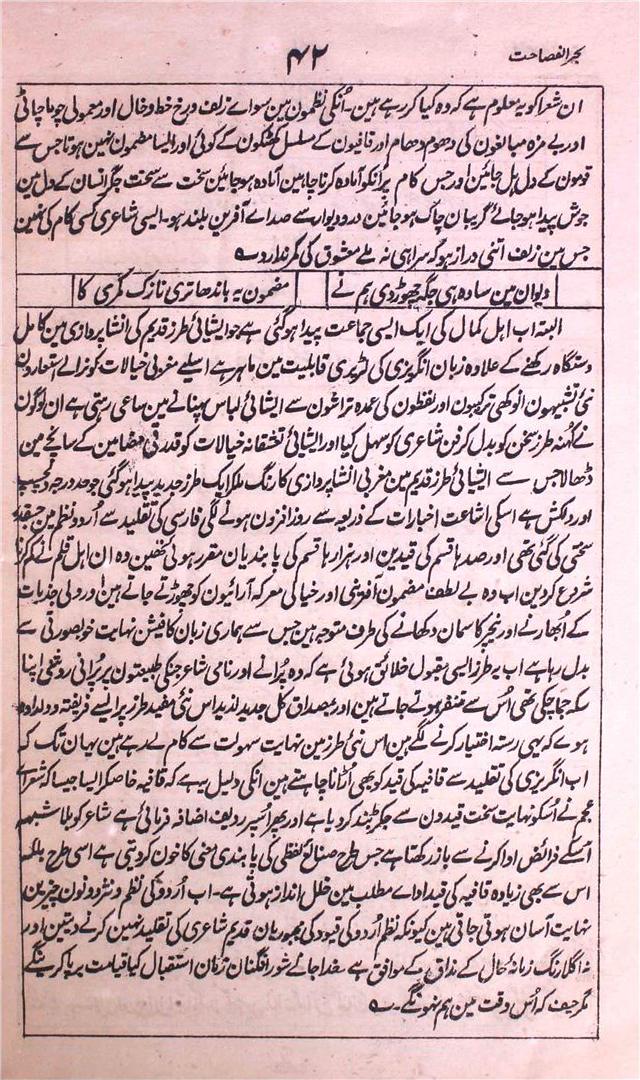 بحر الفصاحت
۴۲
ان شعرا کو یہ معلوم ہے کہ وہ کیا کر رہے ہین۔ اُنکی نظمون مین سواے زلف و رخ خط و خال اور معمولی چوما چاٹی
اور بے مزہ مبالغون کی دھوم دھام اور قافیون کے مسلسل کھٹکون کے کوئی اور ایسا مضمون نہین ہوتا جس سے
قومون کے دل ہل جائین اور جس کام پر انکو آمادہ کرنا چاہین آمادہ ہو جائین سخت سے سخت جگر انسان کے دل مین
جوش پیدا ہو جائے گریبان چاک ہو جائین در و دیوار سے صداے آفرین بلند ہو۔ ایسی شاعری کسی کام کی نہین
جس مین زلف اتنی دراز ہو کہ سرا ہی نہ ملے معشوق کی کمر ندارد ے
دیوان مین سادہ ہی جگہ چھوڑ دی ہم نے
مضمون یہ باندھا تری نازک کمری کا
البتہ اب اہل کمال کی ایک ایسی جماعت پیدا ہو گئی ہے جو ایشیائی طرز قدیم کی انشا پردازی مین کامل
دستگاہ رکھنے کے علاوہ زبان انگریزی کی لٹریری قابلیت مین ماہر ہے اسلیے مغربی خیالات کو نرالے استعارون
نئی تشبیہون انوکھی ترکیبون اور لفظون کی عمدہ تراشون سے ایشیائی لباس پہنانے مین ساعی رہتی ہے ان لوگون
نے کہنہ طرز سخن کو بدل کر فن شاعری کو سہل کیا اور ایشیائی عشقانہ خیالات کو قدرتی مضامین کے سانچے مین
ڈھالا جس سے ایشیائی طرز قدیم مین مغربی انشا پردازی کا رنگ ملکر ایک طرز جدید پیدا ہو گئی جو حد درجہ دلچسپ
اور دلکش ہے اسکی اشاعت اخبارات کے ذریعہ سے روز افزون ہونے لگی فارسی کی تقلید سے اُردو نظم مین جسقدر
سختی کی گئی تھی اور صدہا قسم کی قیدین اور ہزارہا قسم کی پابندیان مقرر ہوئی تھین وہ ان اہل قلم نے کم کرنا
شروع کردین اب وہ بے لطف مضمون آفرینی اور خیالی معرکہ آرائیون کو چھوڑتے جاتے ہین اور دلی جذبات
کے اُبھارنے اور نیچر کا سمان دکھانے کی طرف متوجہ ہین جس سے ہماری زبان کا فیشن نہایت خوبصورتی سے
بدل رہا ہے اب یہ طرز ایسی مقبول خلائق ہوئی ہے کہ وہ پُرانے اور نامی شاعر جنکی طبیعتون پر پُرانی روشنی اپنا
سکہ جما چکی تھی اُس سے متنفر ہوتے جاتے ہین اور بمصداق کل جدید لذیذ اس نئی مفید طرز پر ایسے فریفتہ و دلدادہ
ہوے کہ یہی رستہ اختیار کرنے لگے ہین اس نئی طرز مین نہایت سہولت سے کام لے رہے ہین یہان تک کہ
اب انگریزی کی تقلید سے قافیہ کی قید کو بھی اُڑانا چاہتے ہین انکی دلیل یہ ہے کہ قافیہ خاصکر ایسا جیسا کہ شعراے
عجم نے اُسکو نہایت سخت قیدون سے جکڑ بند کر دیا ہے اور پھر اُسپر ردیف اضافہ فرمائی ہے شاعر کو بلا شبہہ
اُسکے فرائض ادا کرنے سے باز رکھتا ہے جس طرح صنائع لفظی کی پابندی معنی کا خون کر دیتی ہے اسی طرح بلکہ
اس سے بھی زیادہ قافیہ کی قید اداے مطلب مین خلل انداز ہوتی ہے۔ اب اُردو کی نظم و نثر دونون چیزین
نہایت آسان ہوتی جاتی ہین کیونکہ نظم اُردو کی قیود کی مجبوریان قدیم شاعری کی تقلید نہین کرنے دیتین اور
نہ اگلا رنگ زمانۂ حال کے مذاق کے موافق ہے خدا جانے شور افگنان زمان استقبال کیا قیامت برپا کرینگے
مگر حیف کہ اُس وقت مین ہم نہونگے۔ ے